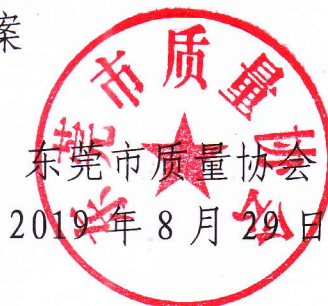 案
东莞市质量协会
东莞市质量协会
2019年8月29日